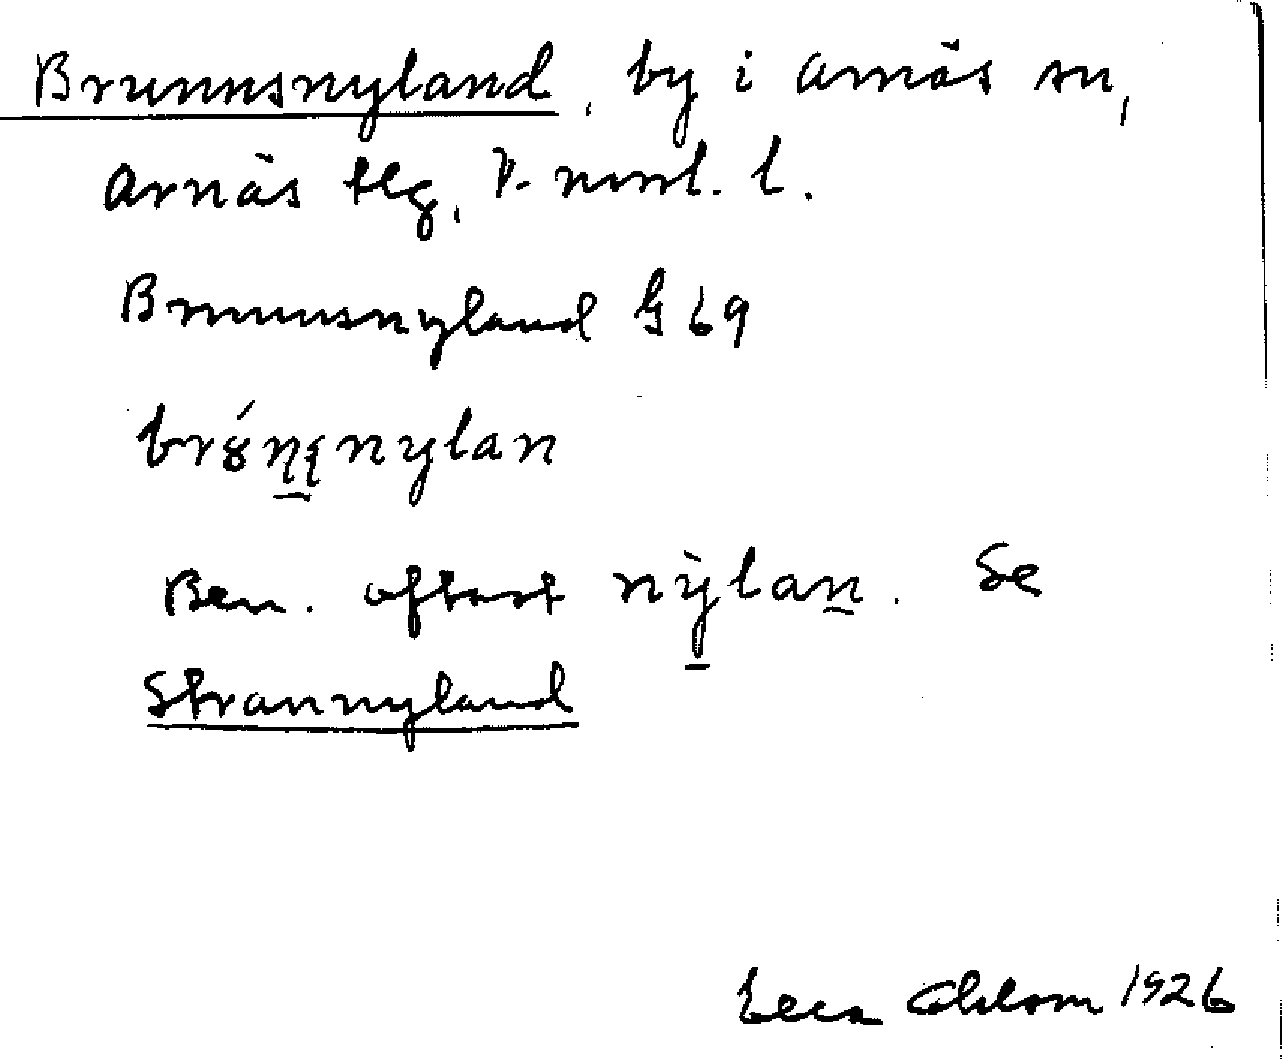 Brunnsnyland, by i Arnäs sn,
Arnäs tlg, V. norrl. l.
Brunnsnyland G 69
nylan
Ben. oftast nỳlan. Se
Strannyland
Ohlsson 1926